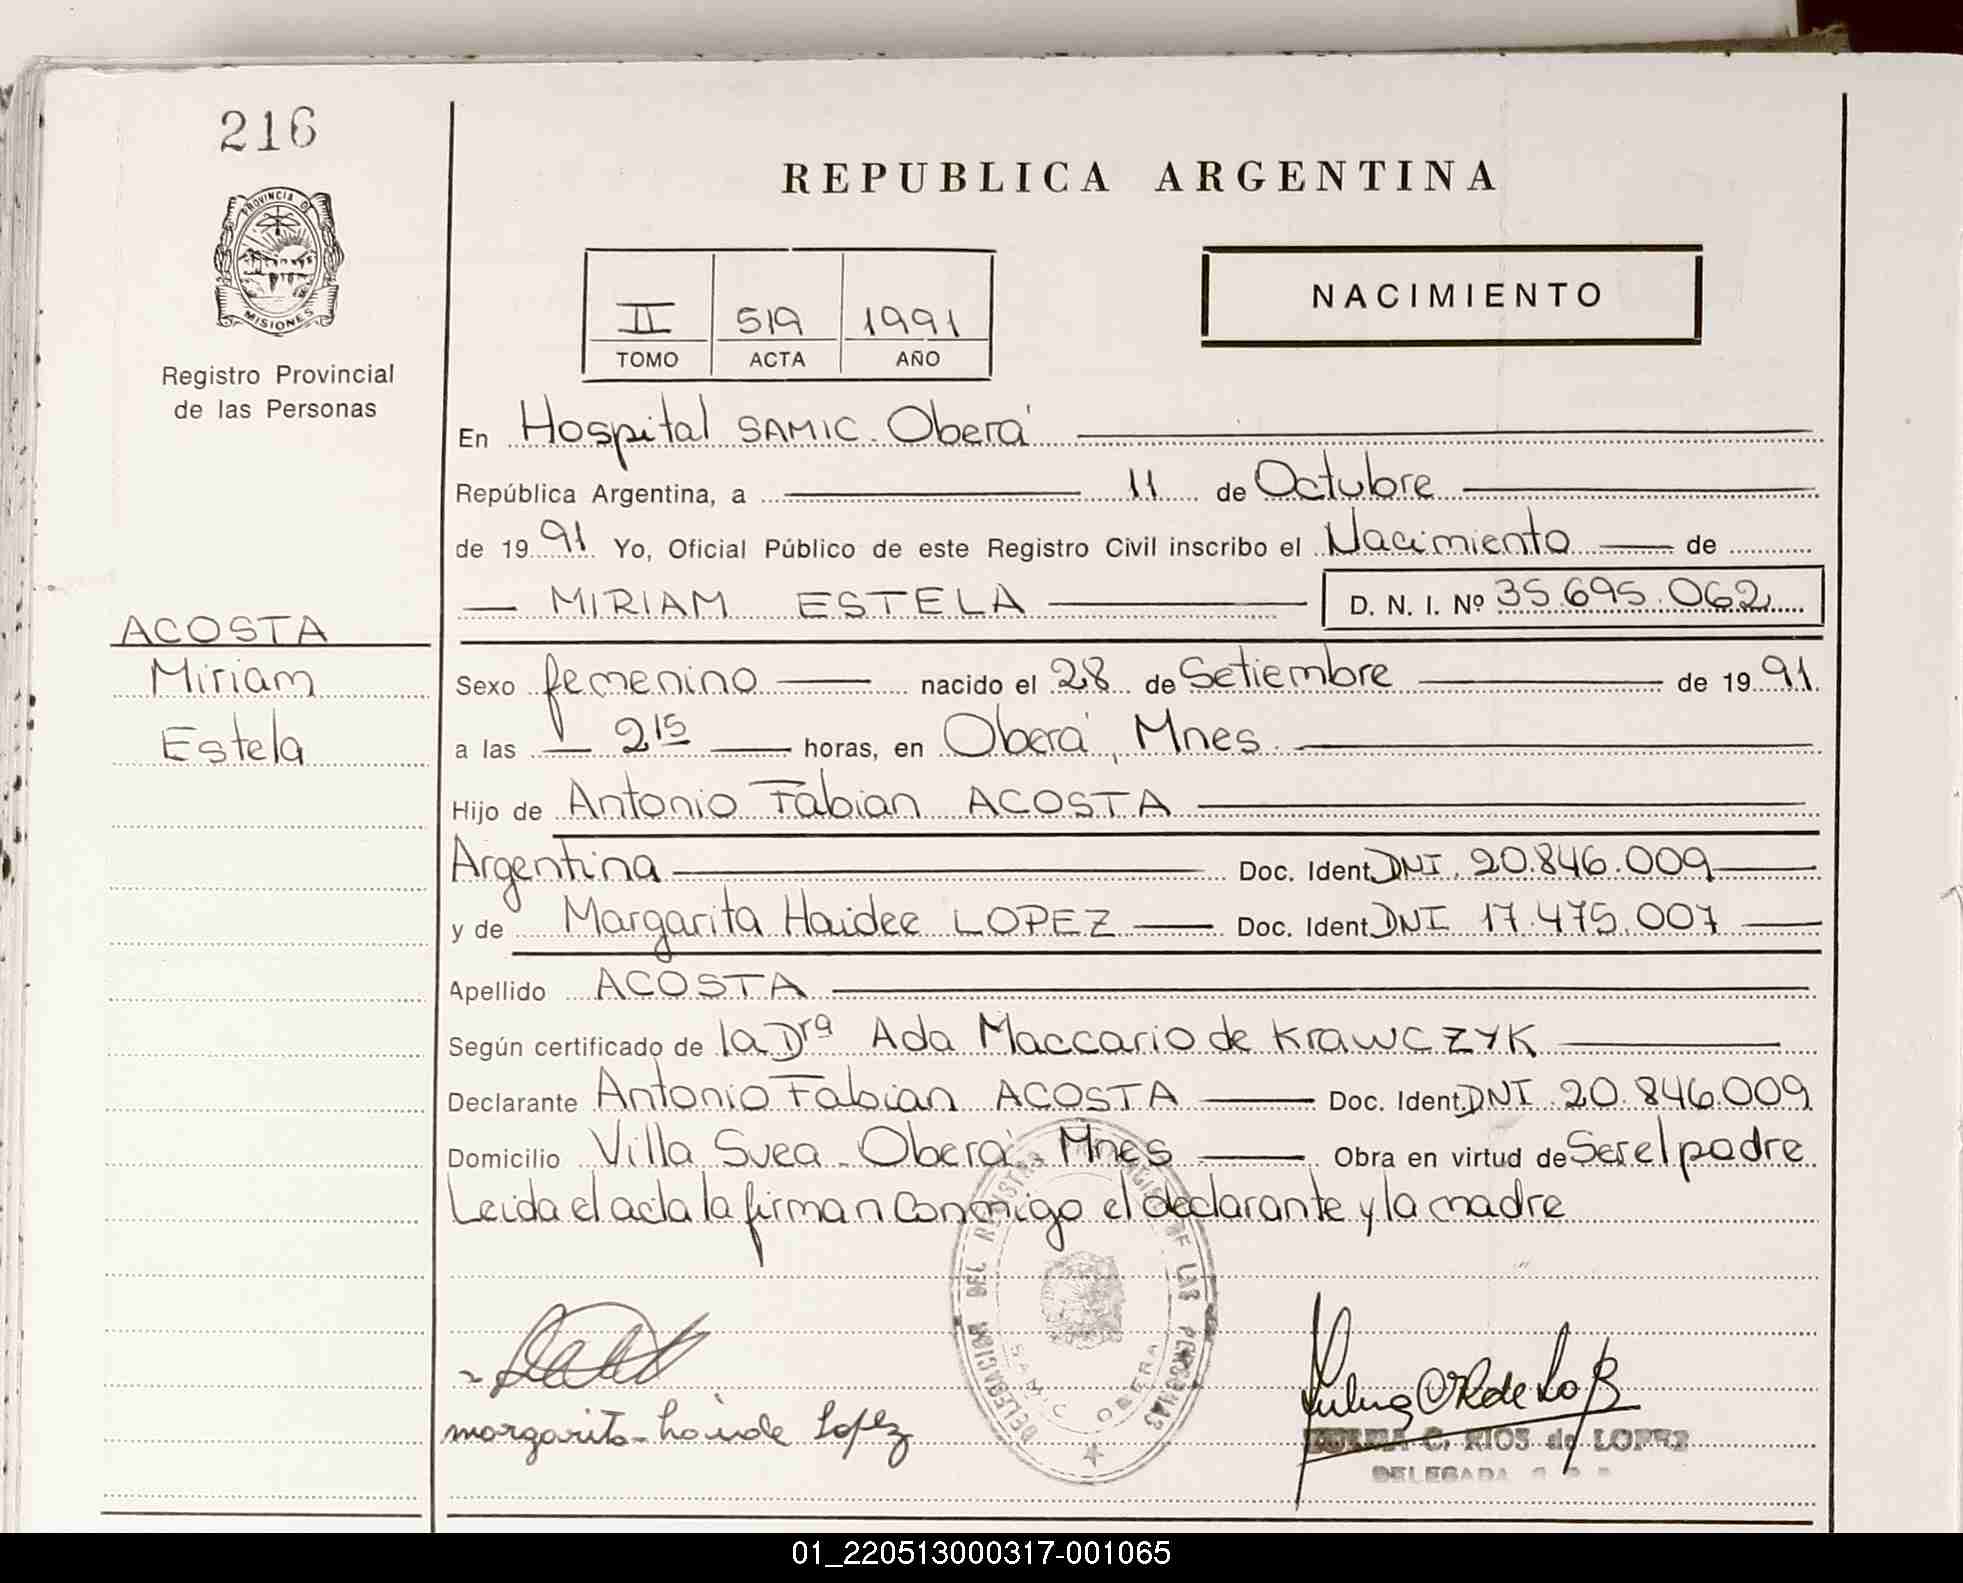 216
REPUBLICA ARGENTINA
PROVINCIA D
MISIONES
Registro Provincial
de las Personas
II 519 1991
TOMO ACTA AÑO
NACIMIENTO
En Hospital SAMIC. Oberá
República Argentina, a 11 de Octubre
de 1991 Yo, Oficial Público de este Registro Civil inscribo el Nacimiento de
MIRIAM ESTELA D. N. I. Nº 35.695.062
ACOSTA
Miriam
Estela
Sexo femenino nacido el 28 de Setiembre de 1991.
a las 2 15 horas, en Oberá, Mnes.
Hijo de Antonio Fabian ACOSTA
Argentina Doc. Ident. DNI. 20.846.009
y de Margarita Haidee LOPEZ Doc. Ident. DNI 17.475.007
Apellido ACOSTA
Según certificado de la Dra Ada Maccario de KRAWCZYK
Declarante Antonio Fabian ACOSTA Doc. Ident. DNI 20.846.009
Domicilio Villa Svea - Oberá Mnes Obra en virtud de Ser el padre
Leida el acta la firman conmigo el declarante y la madre
DELEGACION DEL REGISTRO DE LAS PERSONAS
OBERA
margarita haide Lopez
C. RIOS de LOPEZ
DELEGADA
01_220513000317-001065